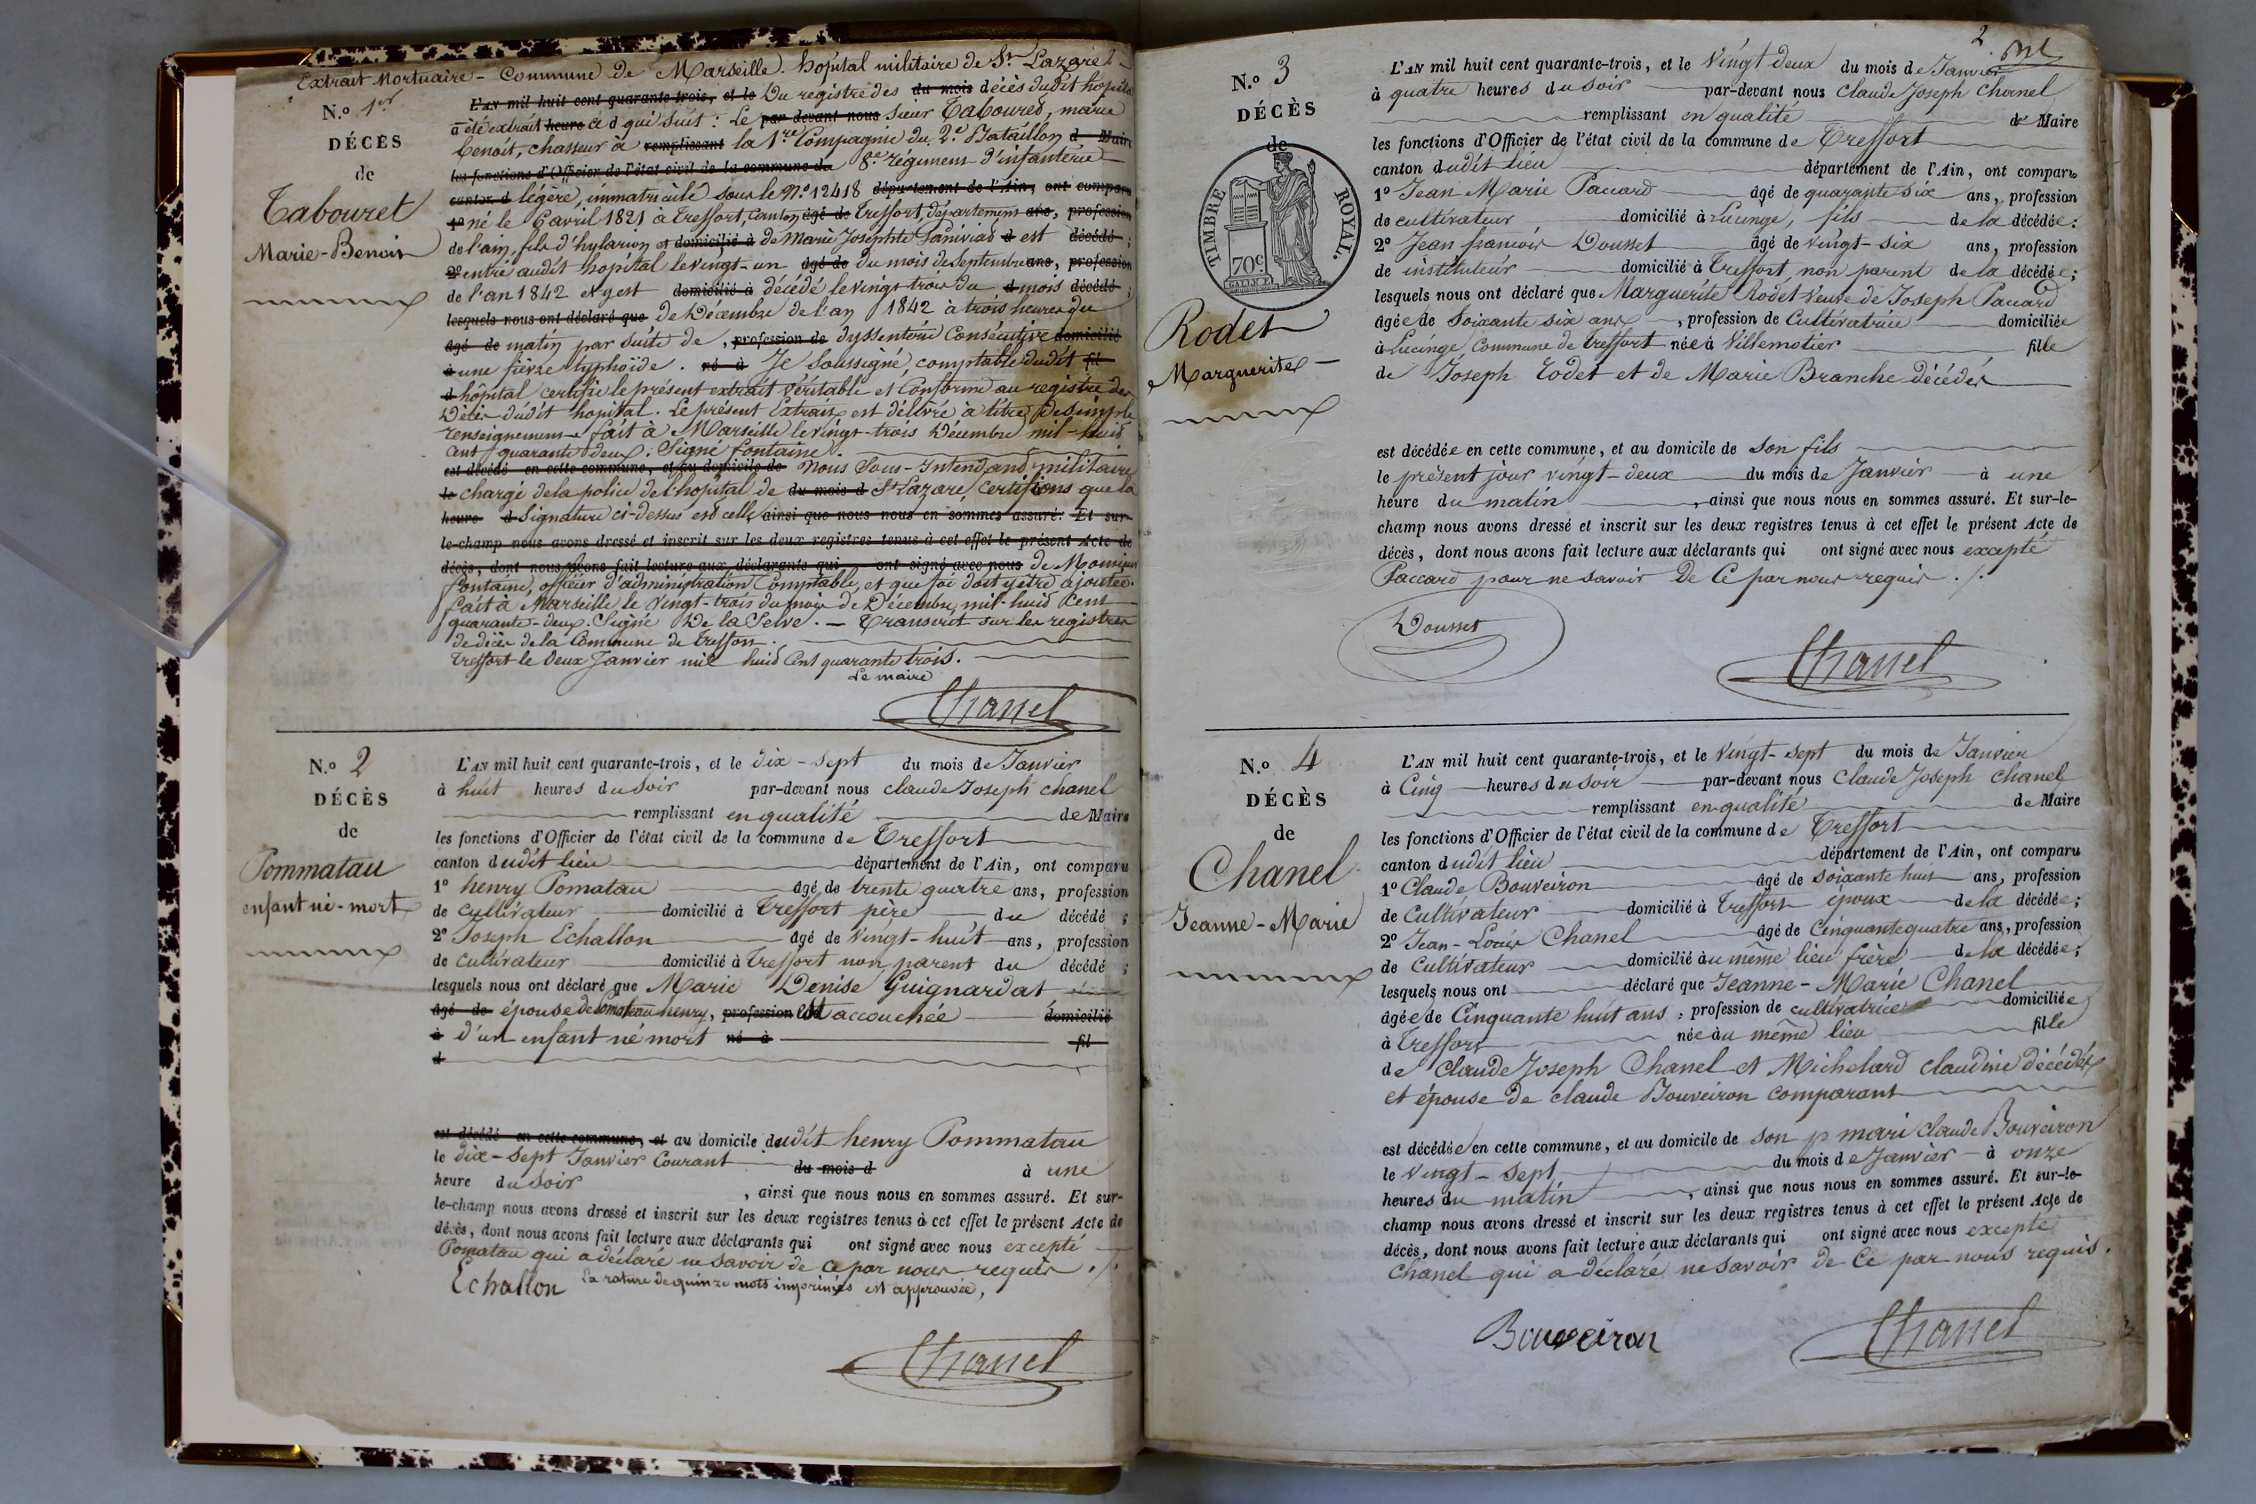 Extrait Mortuaire - Commune de Marseille. hôpital militaire de St Lazare
N.º 1er
DÉCÈS
de
Tabouret
Marie-Benoit
L'AN mil huit cent quarante-trois, et le Du registre des du mois décès dudit hopital
a été extrait heure ce d qui suit : Le par-devant nous sieur Tabouret, marie
benoit, chasseur à remplissant la 1re Compagnie du 2e Bataillon d Maire
les fonctions d'Officier de l'état civil de la commune de 8e régiment d'infanterie
canton d légère, immatriculé sous le N.º 12418 département de l'Ain, ont comparu
1º né le 6 avril 1821 à Treffort, Canton âgé de Treffort, département ans, profession
de l'ain, fils d'hylarion et domicilié à de Marie Josephte d est décédé ;
2º entré audit hopital le vingt-un âgé de du mois de septembre ans, profession
de l'an 1842 et y est domicilié à décédé le vingt trois du d mois décédé ;
lesquels nous ont déclaré que de Décembre de l'an 1842 à trois heures du
âgé de matin par suite de , profession de dyssenterie Consécutive domicilié
à une fièvre typhoïde. né à Je Soussigné, comptable dudit fil
d hôpital certifie le présent extrait véritable et Conforme au registre des
Décès dudit hopital. Le présent Extrait est délivré à titre de simple
renseignement fait à Marseille le vingt-trois Décembre mil-huit
cent quarante deux. Signé fontaine.
est décédé en cette commune, et au domicile de Nous Sous-Intendant militaire
le chargé de la police de l'hopital de du mois d St Lazare, certifions que la
heure d Signature ci-dessus est celle ainsi que nous nous en sommes assuré. Et sur-
le-champ nous avons dressé et inscrit sur les deux registres tenus à cet effet le présent Acte de
décès, dont nous avons fait lecture aux déclarants qui ont signé avec nous de Monsieur
fontaine, officier d'administration Comptable, et que foi doit y être ajoutée.
fait à Marseille le vingt-trois du mois de Décembre mil-huit Cent
quarante-deux. Signé De la Selve. — Transcrit sur les registres
de décès de la Commune de treffort.
Treffort le deux Janvier mil huit Cent quarante trois.
Le maire
Chanel
N.º 2
DÉCÈS
de
Pommatau
enfant né-mort
L'AN mil huit cent quarante-trois, et le dix-sept du mois de Janvier
à huit heures du soir par-devant nous claude Joseph chanel
remplissant en qualité de Maire
les fonctions d'Officier de l'état civil de la commune de Treffort
canton dudit lieu département de l'Ain, ont comparu
1º henry Pomatau âgé de trente quatre ans, profession
de cultivateur domicilié à Treffort père du décédé ;
2º Joseph Echallon âgé de vingt-huit ans, profession
de cultivateur domicilié à Treffort non parent du décédé ;
lesquels nous ont déclaré que Marie Denise Guignardat
âgé de épouse de Pomatau henry, profession est accouchée domicilié
à d'un enfant né mort né à fil
d
est décédé en cette commune, et au domicile dudit henry Pommatau
le dix-sept Janvier Courant du mois d à une
heure du soir , ainsi que nous nous en sommes assuré. Et sur-
le-champ nous avons dressé et inscrit sur les deux registres tenus à cet effet le présent Acte de
décès, dont nous avons fait lecture aux déclarants qui ont signé avec nous excepté
Pomatau qui a déclaré ne savoir de ce par nous requis ./.
Echallon La rature de quinze mots imprimés est approuvée,
Chanel
2
N.º 3
DÉCÈS
de
TIMBRE ROYAL.
70c.
Rodet
Marguerite
L'AN mil huit cent quarante-trois, et le vingt deux du mois de Janvier
à quatre heures du soir par-devant nous claude Joseph Chanel
remplissant en qualité de Maire
les fonctions d'Officier de l'état civil de la commune de Treffort
canton dudit lieu département de l'Ain, ont comparu
1º Jean Marie Paccard âgé de quarante six ans, profession
de cultivateur domicilié à Lucinge, fils de la décédée :
2º Jean francois Dousset âgé de vingt-six ans, profession
de instituteur domicilié à Treffort non parent de la décédée ;
lesquels nous ont déclaré que Marguerite Rodet veuve de Joseph Paccard
âgée de Soixante six ans , profession de Cultivatrice domiciliée
à Lucinge Commune de treffort née à Villemotier fille
de Joseph Rodet et de Marie Branche décédés
est décédée en cette commune, et au domicile de son fils
le présent jour vingt-deux du mois de Janvier à une
heure du matin , ainsi que nous nous en sommes assuré. Et sur-le-
champ nous avons dressé et inscrit sur les deux registres tenus à cet effet le présent Acte de
décès, dont nous avons fait lecture aux déclarants qui ont signé avec nous excepté
Paccard pour ne savoir de Ce par nous requis ./.
Dousset
Chanel
N.º 4
DÉCÈS
de
Chanel
Jeanne-Marie
L'AN mil huit cent quarante-trois, et le vingt-sept du mois de Janvier
à Cinq heures du soir par-devant nous claude Joseph Chanel
remplissant en qualité de Maire
les fonctions d'Officier de l'état civil de la commune de Treffort
canton dudit lieu département de l'Ain, ont comparu
1º Claude Bouveiron âgé de soixante huit ans, profession
de Cultivateur domicilié à Treffort époux de la décédée ;
2º Jean-Louis Chanel âgé de Cinquante quatre ans, profession
de Cultivateur domicilié au même lieu frère de la décédée ;
lesquels nous ont déclaré que Jeanne-Marie Chanel
âgée de Cinquante huit ans , profession de cultivatrice domiciliée
à Treffort née au même lieu fille
de Claude Joseph Chanel et Michelard claudine décédés
et épouse de claude Bouveiron comparant
est décédée en cette commune, et au domicile de son p mari Claude Bouveiron
le vingt-sept du mois de Janvier à onze
heures du matin , ainsi que nous nous en sommes assuré. Et sur-le-
champ nous avons dressé et inscrit sur les deux registres tenus à cet effet le présent Acte de
décès, dont nous avons fait lecture aux déclarants qui ont signé avec nous excepté
Chanel qui a déclaré ne savoir de Ce par nous requis.
Bouveiron
Chanel